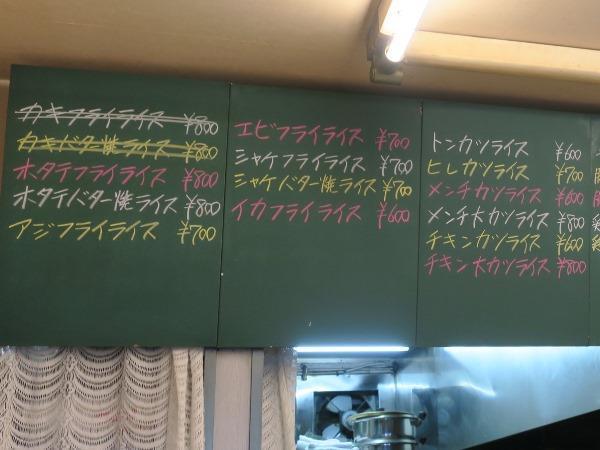 カキフライライス ¥800
カキバター焼ライス ¥800
ホタテフライライス ¥800
ホタテバター焼ライス ¥800
アジフライライス ¥700
エビフライライス ¥700
シャケフライライス ¥700
シャケバター焼ライス ¥700
イカフライライス ¥600
トンカツライス ¥600
ヒレカツライス ¥700
メンチカツライス ¥600
メンチ大カツライス ¥800
チキンカツライス ¥600
チキン大カツライス ¥800